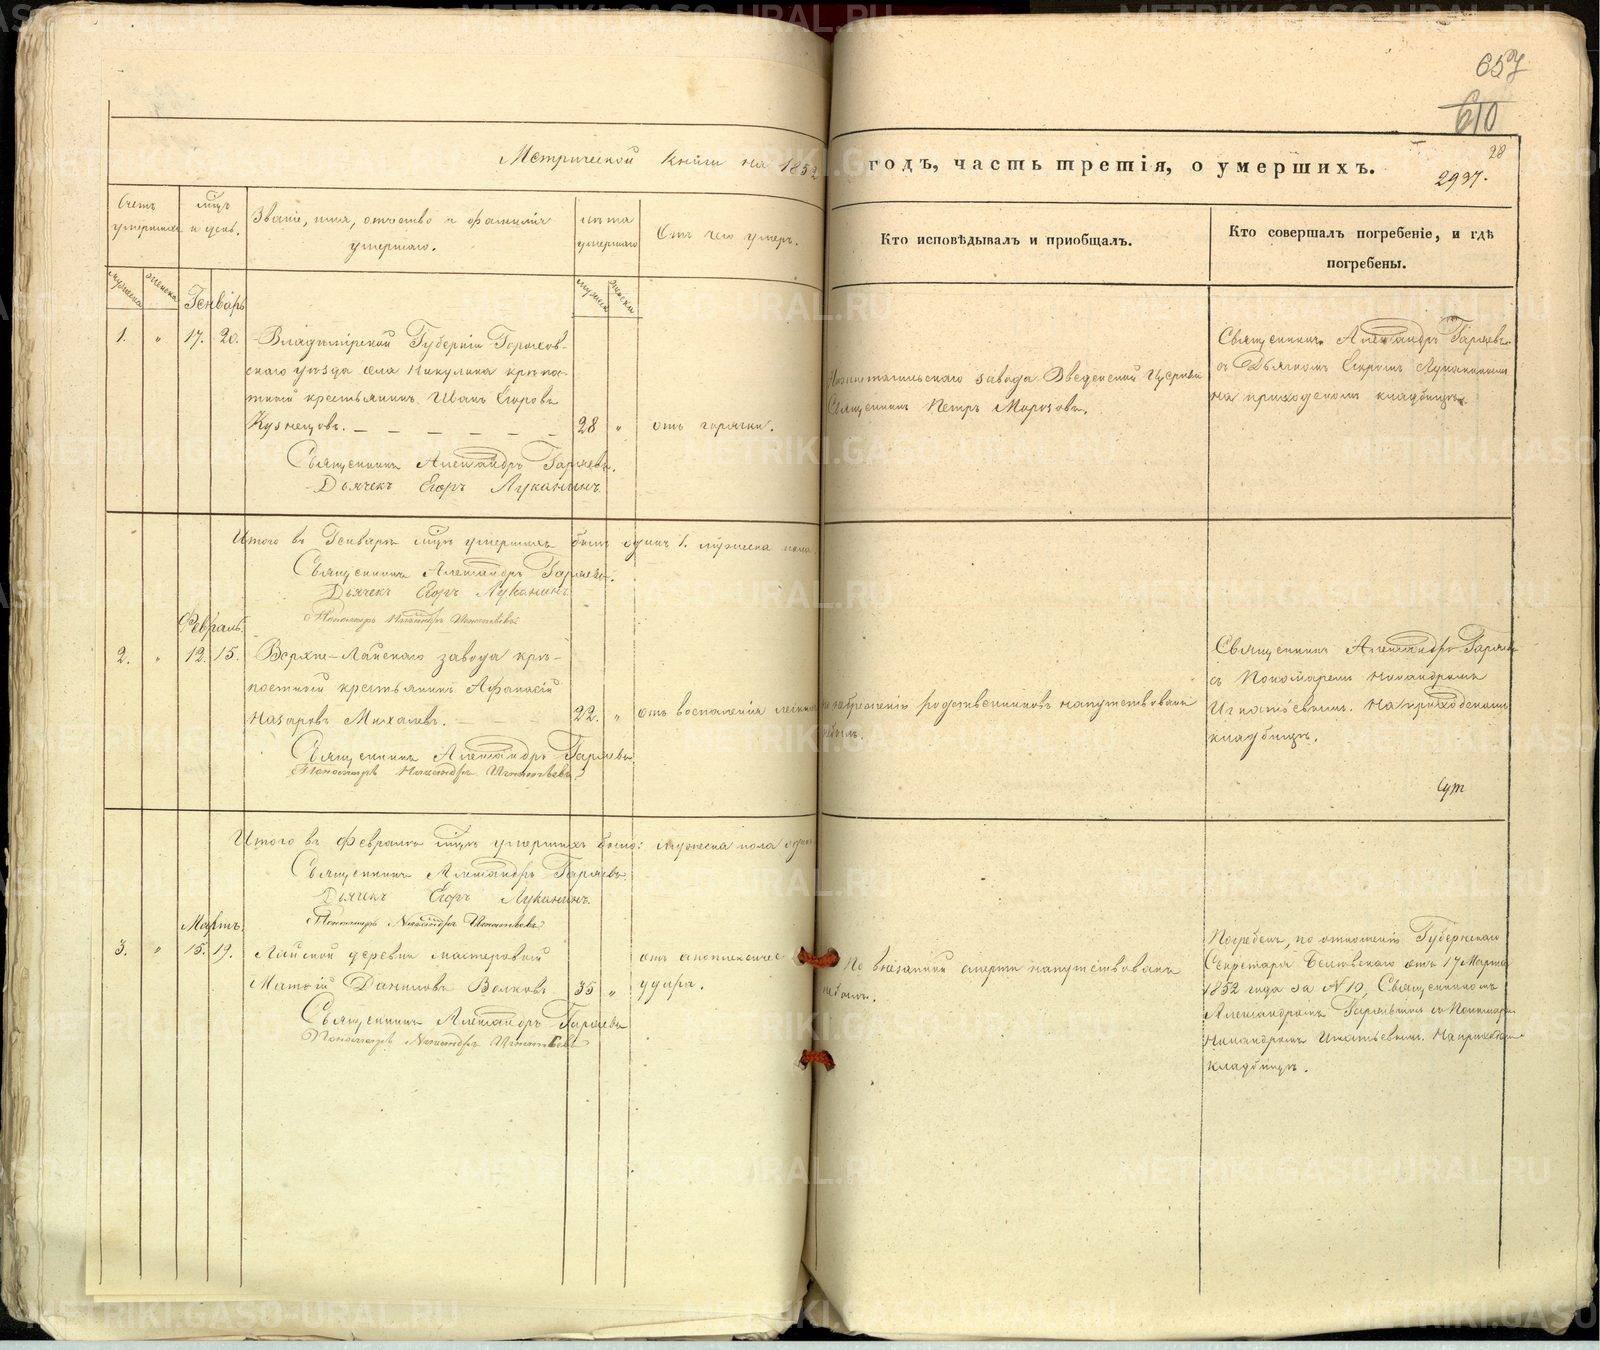 657
610
28
2937.
Метрической книги на 1852 годъ, часть третія, о умершихъ.
Счетъ умершихъ
мѣсяцъ и день.
Званіе, имя, отчество и фамилія умершаго.
лѣта умершаго
Отъ чего умеръ.
Кто исповѣдывалъ и пріобщалъ.
Кто совершалъ погребеніе, и гдѣ
погребены.
мужеска
женска
мужеска
женска
Генварь
1. " 17. 20.
Владимірской Губерніи Горохов-
скаго уѣзда села Никулина крѣпо-
стный крестьянинъ Иванъ Егоровъ
Кузнецовъ. 28 "
отъ горячки.
Нижнетагильскаго завода Введенской Церкви
Священникъ Петръ Морозовъ.
Священникъ Александръ Гаряевъ
съ Дьячкомъ Егоромъ Луканинымъ
на приходскомъ кладбищѣ.
Священникъ Александръ Гаряевъ.
Дьячекъ Егоръ Луканинъ.
Итого въ Генварѣ мѣсяцѣ умершихъ былъ одинъ 1. мужеска пола
Священникъ Александръ Гаряевъ.
Дьячекъ Егоръ Луканинъ
Пономарь Никандръ Игнатьевъ.
Февраль.
2. " 12. 15.
Верхне-Лайскаго завода крѣ-
постный крестьянинъ Афанасій
Назаровъ Михалевъ. 22. "
отъ воспаленія легкихъ
по небреженію родственниковъ напутствованъ
небылъ.
Священникъ Александръ Гаряевъ
съ Пономаремъ Никандромъ
Игнатьевымъ. На приходскомъ
кладбищѣ.
Священникъ Александръ Гаряевъ
Пономарь Никандръ Игнатьевъ
Итого въ Февралѣ мѣсяцѣ умершихъ было: мужеска пола одинъ
Священникъ Александръ Гаряевъ.
Дьячекъ Егоръ Луканинъ.
Пономарь Никандръ Игнатьевъ
Мартъ.
3. " 15. 19.
Лайской деревни мастеровой
Матѳій Даниловъ Волковъ 35 "
отъ апоплексическ
удара.
По внезапной смерти напутствованъ
небылъ.
Погребенъ, по отношенію Губернскаго
Секретаря отъ 17 Марта
1852 года за №10, Священникомъ
Александромъ Гаряевымъ съ Пономаремъ
Никандромъ Игнатьевымъ. На приходскомъ
кладбищѣ.
Священникъ Александръ Гаряевъ
Пономарь Никандръ Игнатьевъ
METRIKI.GASO-URAL.RU